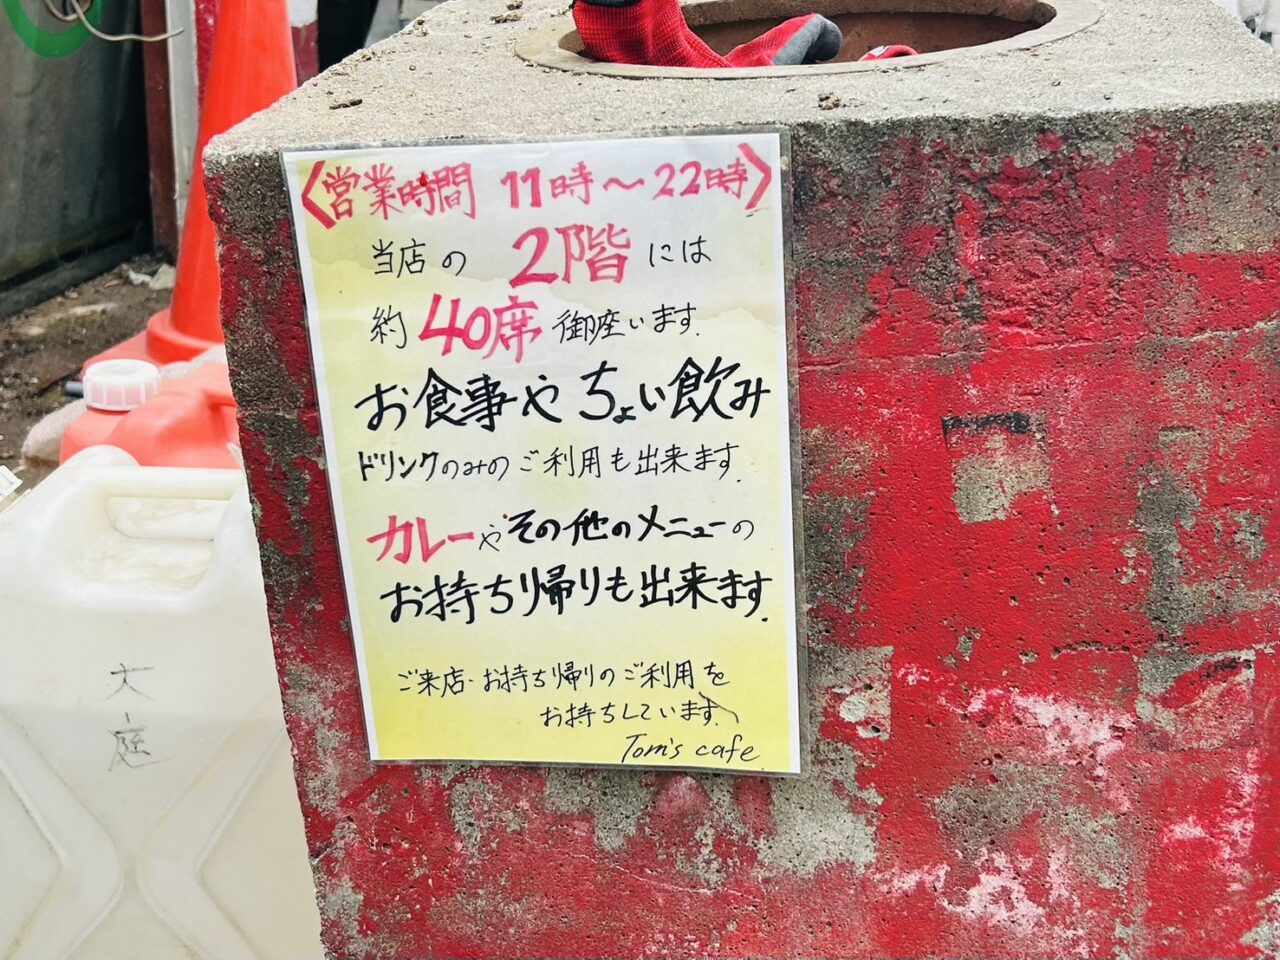 〈営業時間 11時〜22時〉
当店の 2階には
約40席 御座います.
お食事や ちょい飲み
ドリンクのみのご利用も出来ます.
カレーやその他のメニューの
お持ち帰りも出来ます.
ご来店・お持ち帰りのご利用を
お持ちしています.
Tom's cafe
大庭